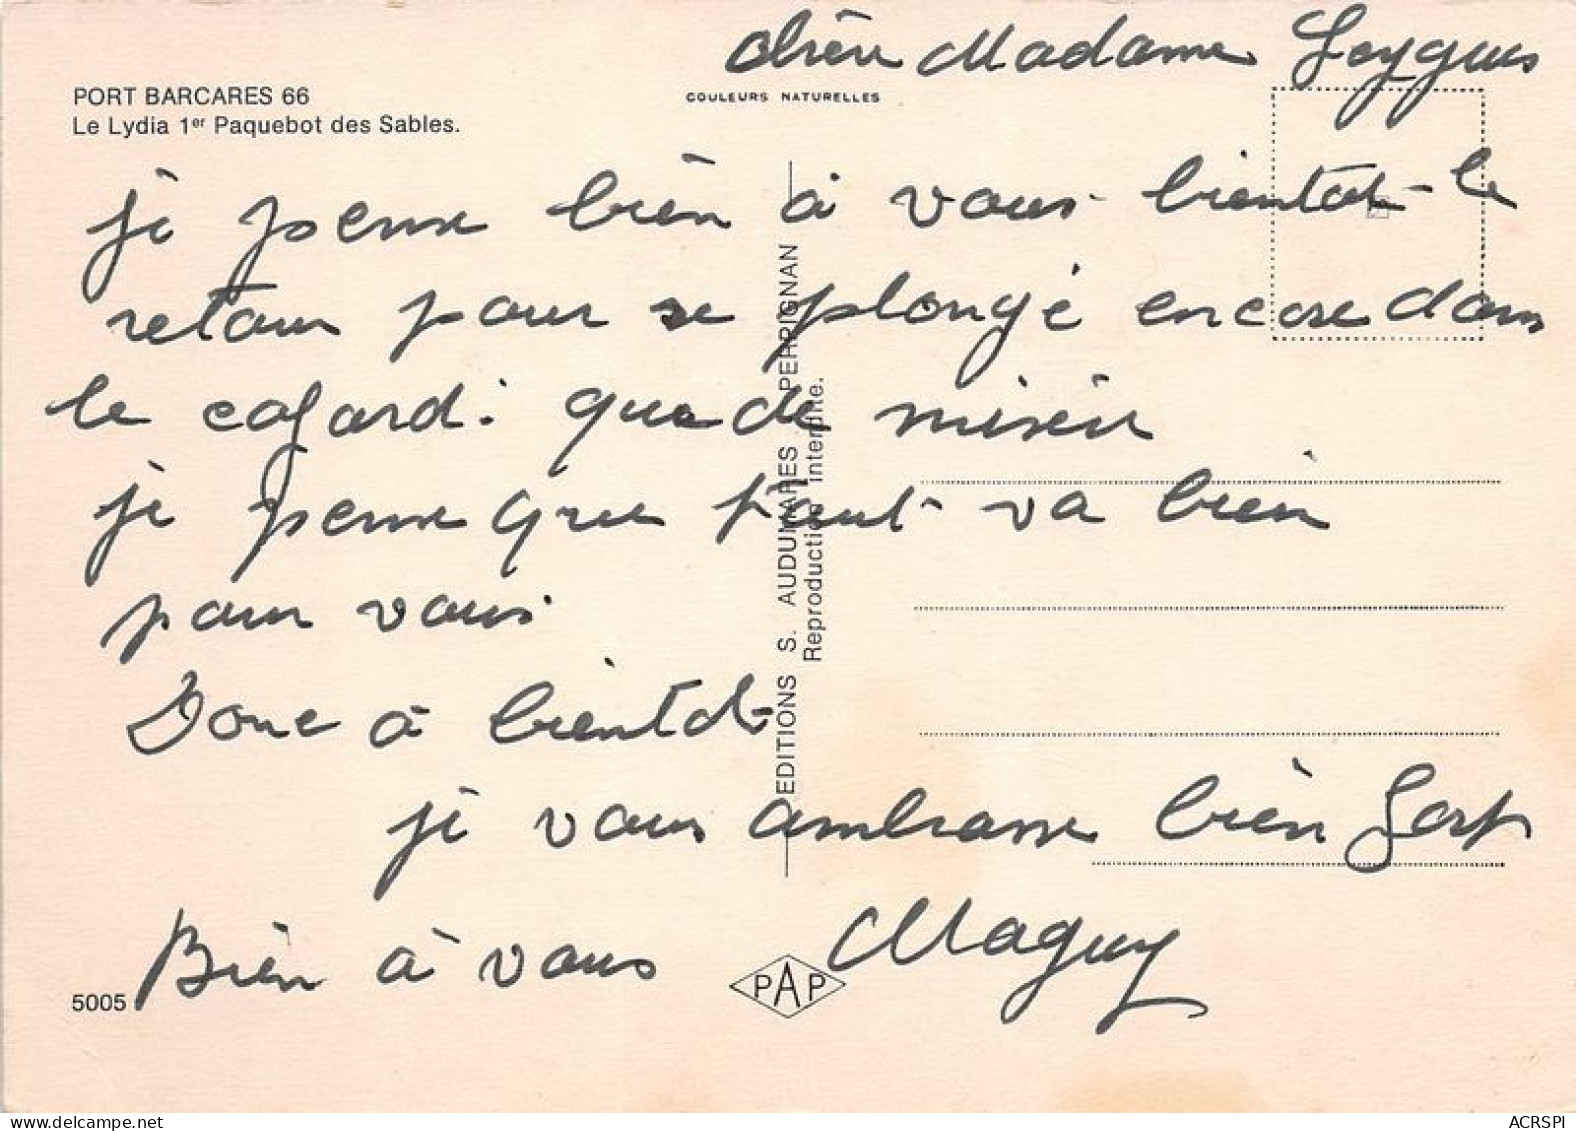 chère Madame Leygues
COULEURS NATURELLES
PORT BARCARES 66
Le Lydia 1er Paquebot des Sables.
je pense bièn à vous bientot le
retour pour se plongé encore dans
le cafard. que de misèir
je pense que tout va bien
pour vous
Donc à bientot
je vous ambrasse bièn fort
Bièn à vous Maguy
5005
PAP
EDITIONS S. AUDUMARES PERPIGNAN
Reproduction interdite.
delcampe.net
ACRSPI